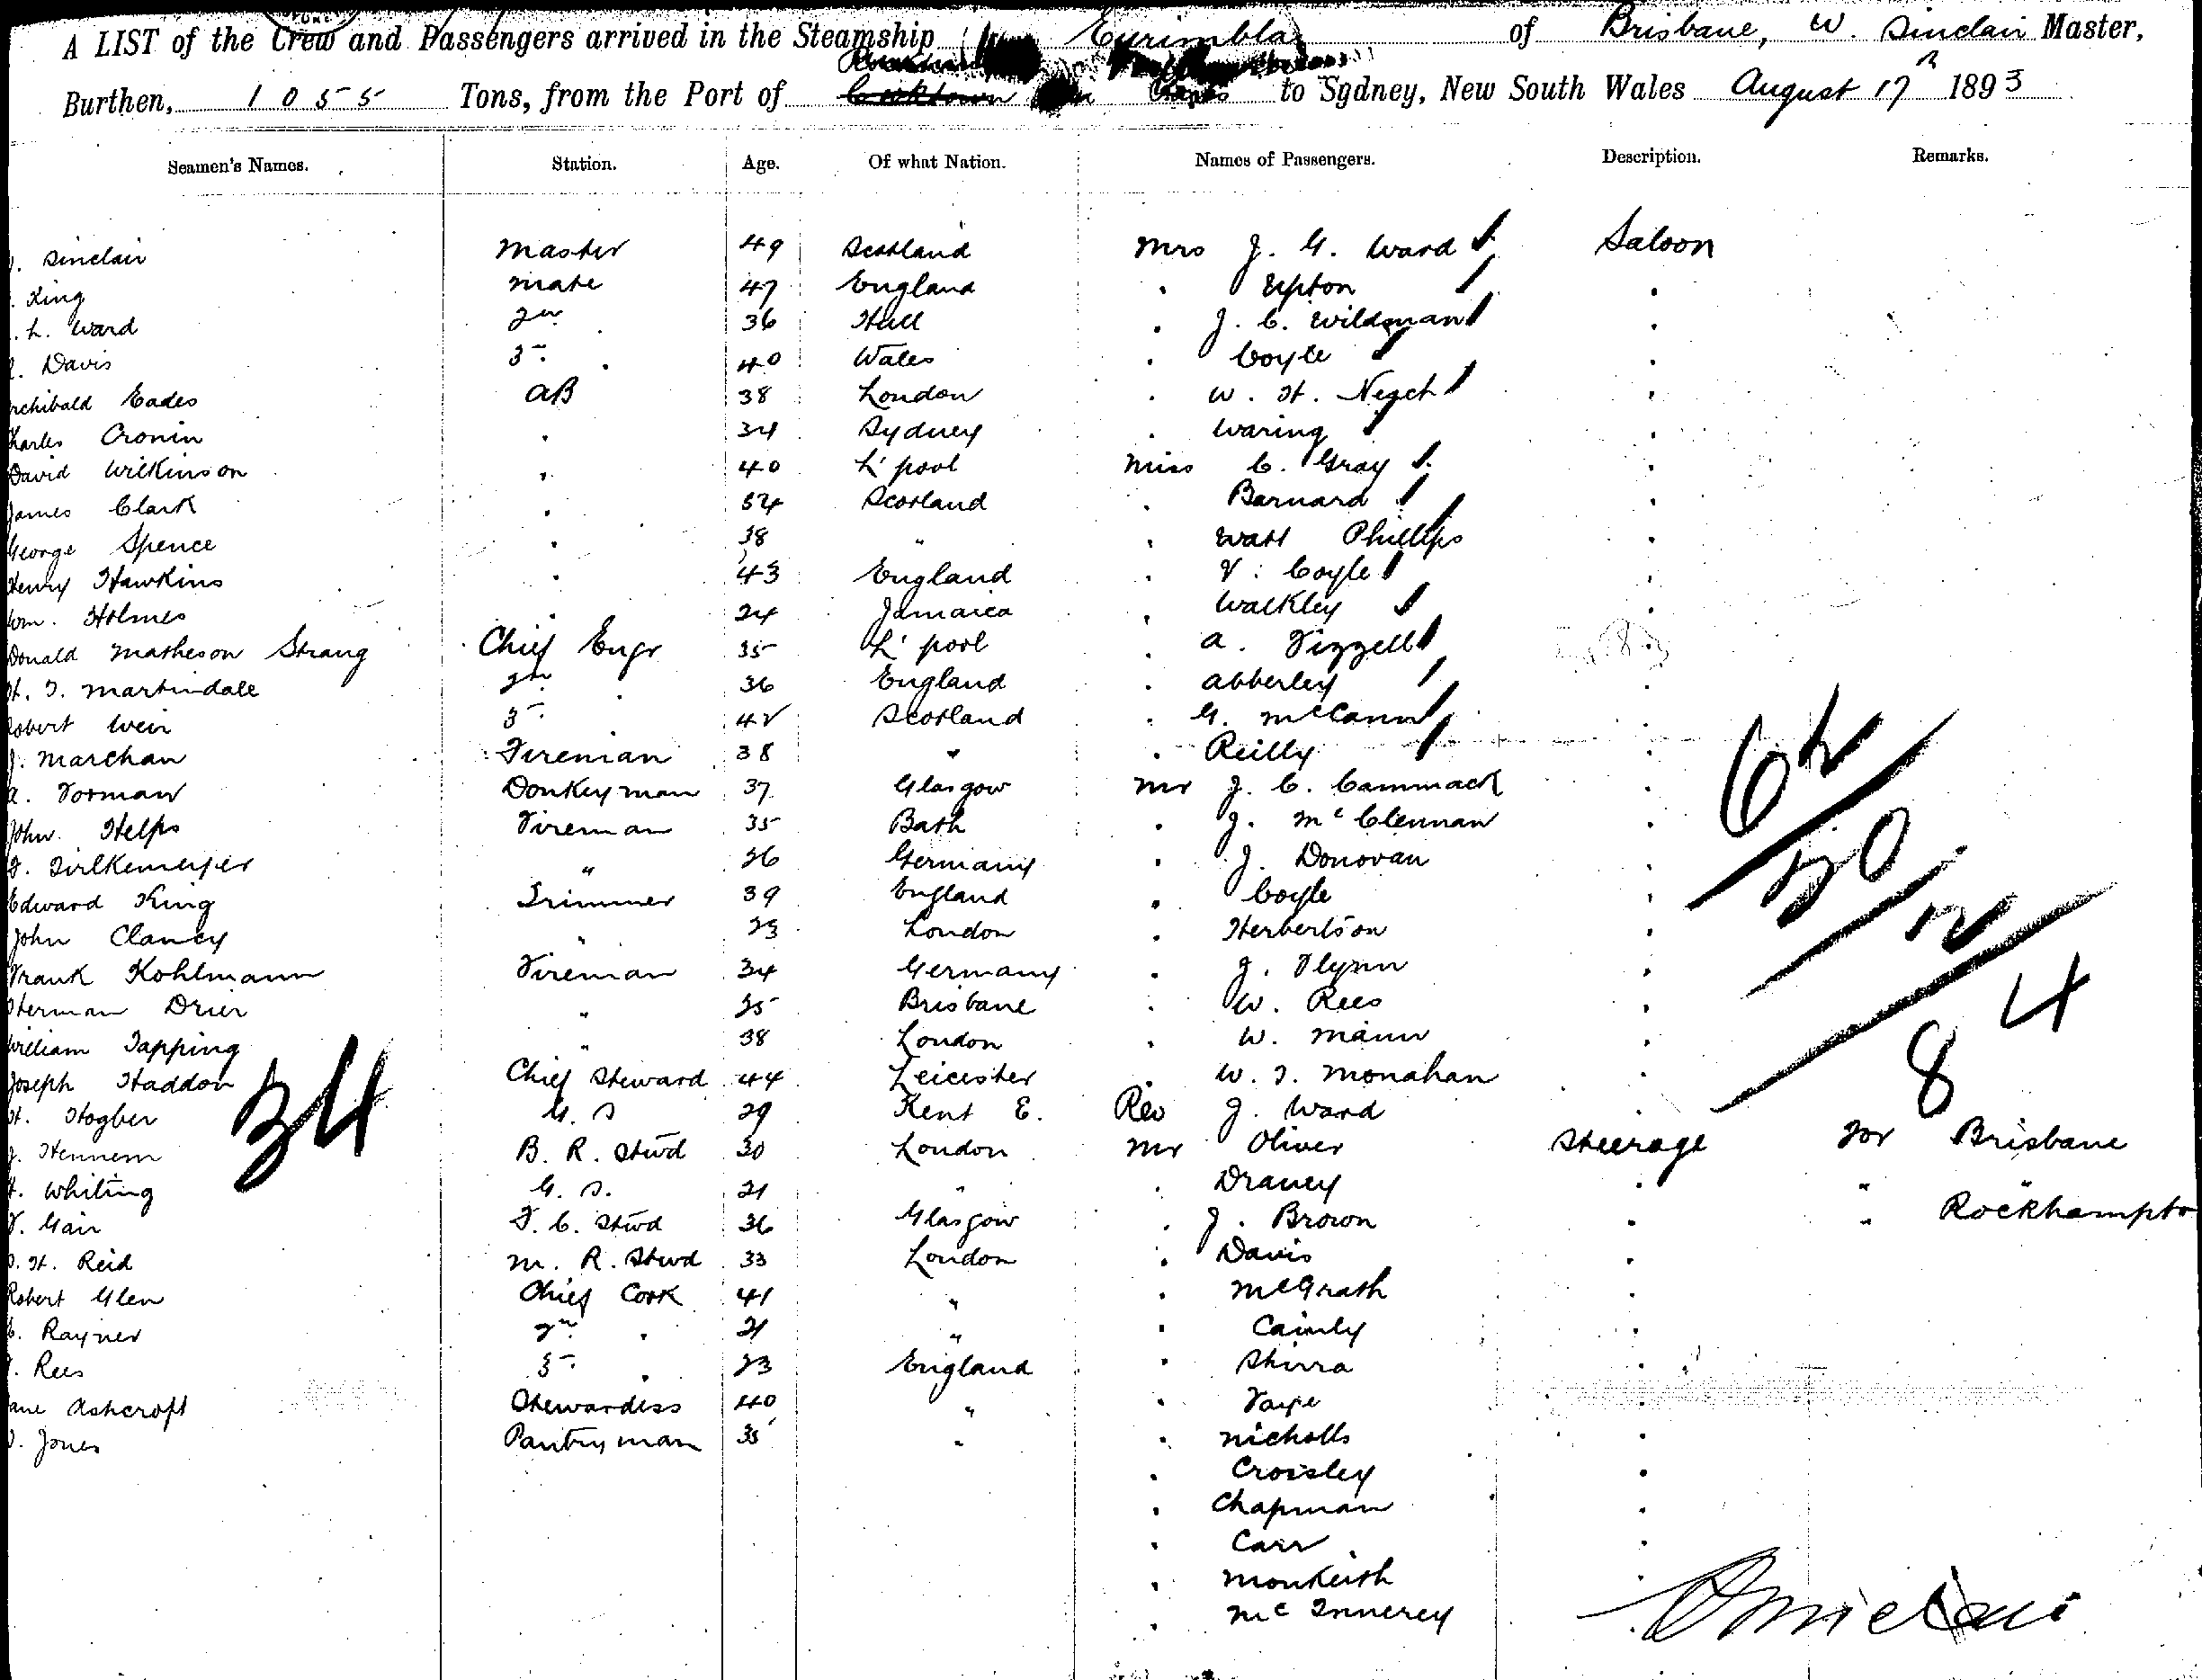 A LIST of the Crew and Passengers arrived in the Steamship Eurimbla of Brisbane, W. Sinclair Master,
Burthen, 1055 Tons, from the Port of Cooktown to Sydney, New South Wales August 17th 1893
Seamen's Names. Station. Age. Of what Nation. Names of Passengers. Description. Remarks.
. Sinclair Master 49 Scotland Mrs J. G. Ward Saloon
. King Mate 47 England " Upton "
. L. Ward 2nd " 36 Hull " J. C. Wildman "
. Davis 3rd " 40 Wales " Coyle "
rchibald Eades AB 38 London " W. H. "
harles Cronin " 34 Sydney " Waring "
David Wilkinson " 40 L'pool Miss C. Gray "
James Clark " 54 Scotland " Barnard "
George Spence " 38 " " Watt Phillips "
Henry Hawkins " 43 England " V. Coyle "
Wm. Holmes " 24 Jamaica " Walkley "
Donald Matheson Strang Chief Engr 35 L'pool " A. Tizzell
H. T. Martindale 2nd " 36 England " Abberley "
Robert Weir 3rd 42 Scotland " G. McCann "
J. Marchan Fireman 38 " " Reilly "
A. Forman Donkeyman 37 Glasgow Mr J. C. Cammack "
John Helps Fireman 35 Bath " J. McClennan "
" 26 Germany " J. Donovan "
Edward King Trimmer 39 England " Coyle "
John Clancy " 23 London " Herbertson "
Frank Kohlmann Fireman 34 Germany " J. Flynn "
Herman Drier " 25 Brisbane " W. Rees "
William Tapping " 38 London " W. Mann "
Joseph Haddon Chief Steward 44 Leicester " W. T. Monahan "
H. Hogben G. S 29 Kent E. Rev J. Ward "
J. Hennem B. R. Stwd 30 London Mr Oliver Steerage For Brisbane
H. Whiting G. S. 21 " " Draney " " "
F. Gair F. C. Stwd 36 Glasgow " J. Brown " " Rockhampto
. H. Reid M. R. Stwd 33 London " Davis "
Robert Glen Chief Cook 41 " " McGrath "
. Rayner 2nd " 21 " " Cainly "
. Rees 3rd " 23 England " Shirra "
ane Ashcroft Stewardess 40 " " Faye "
. Jones Pantryman 35 " " Nicholls "
" Croisley "
" Chapman "
" Carr "
" Monkeith "
" McInnerey
34
62
20
12
4
8